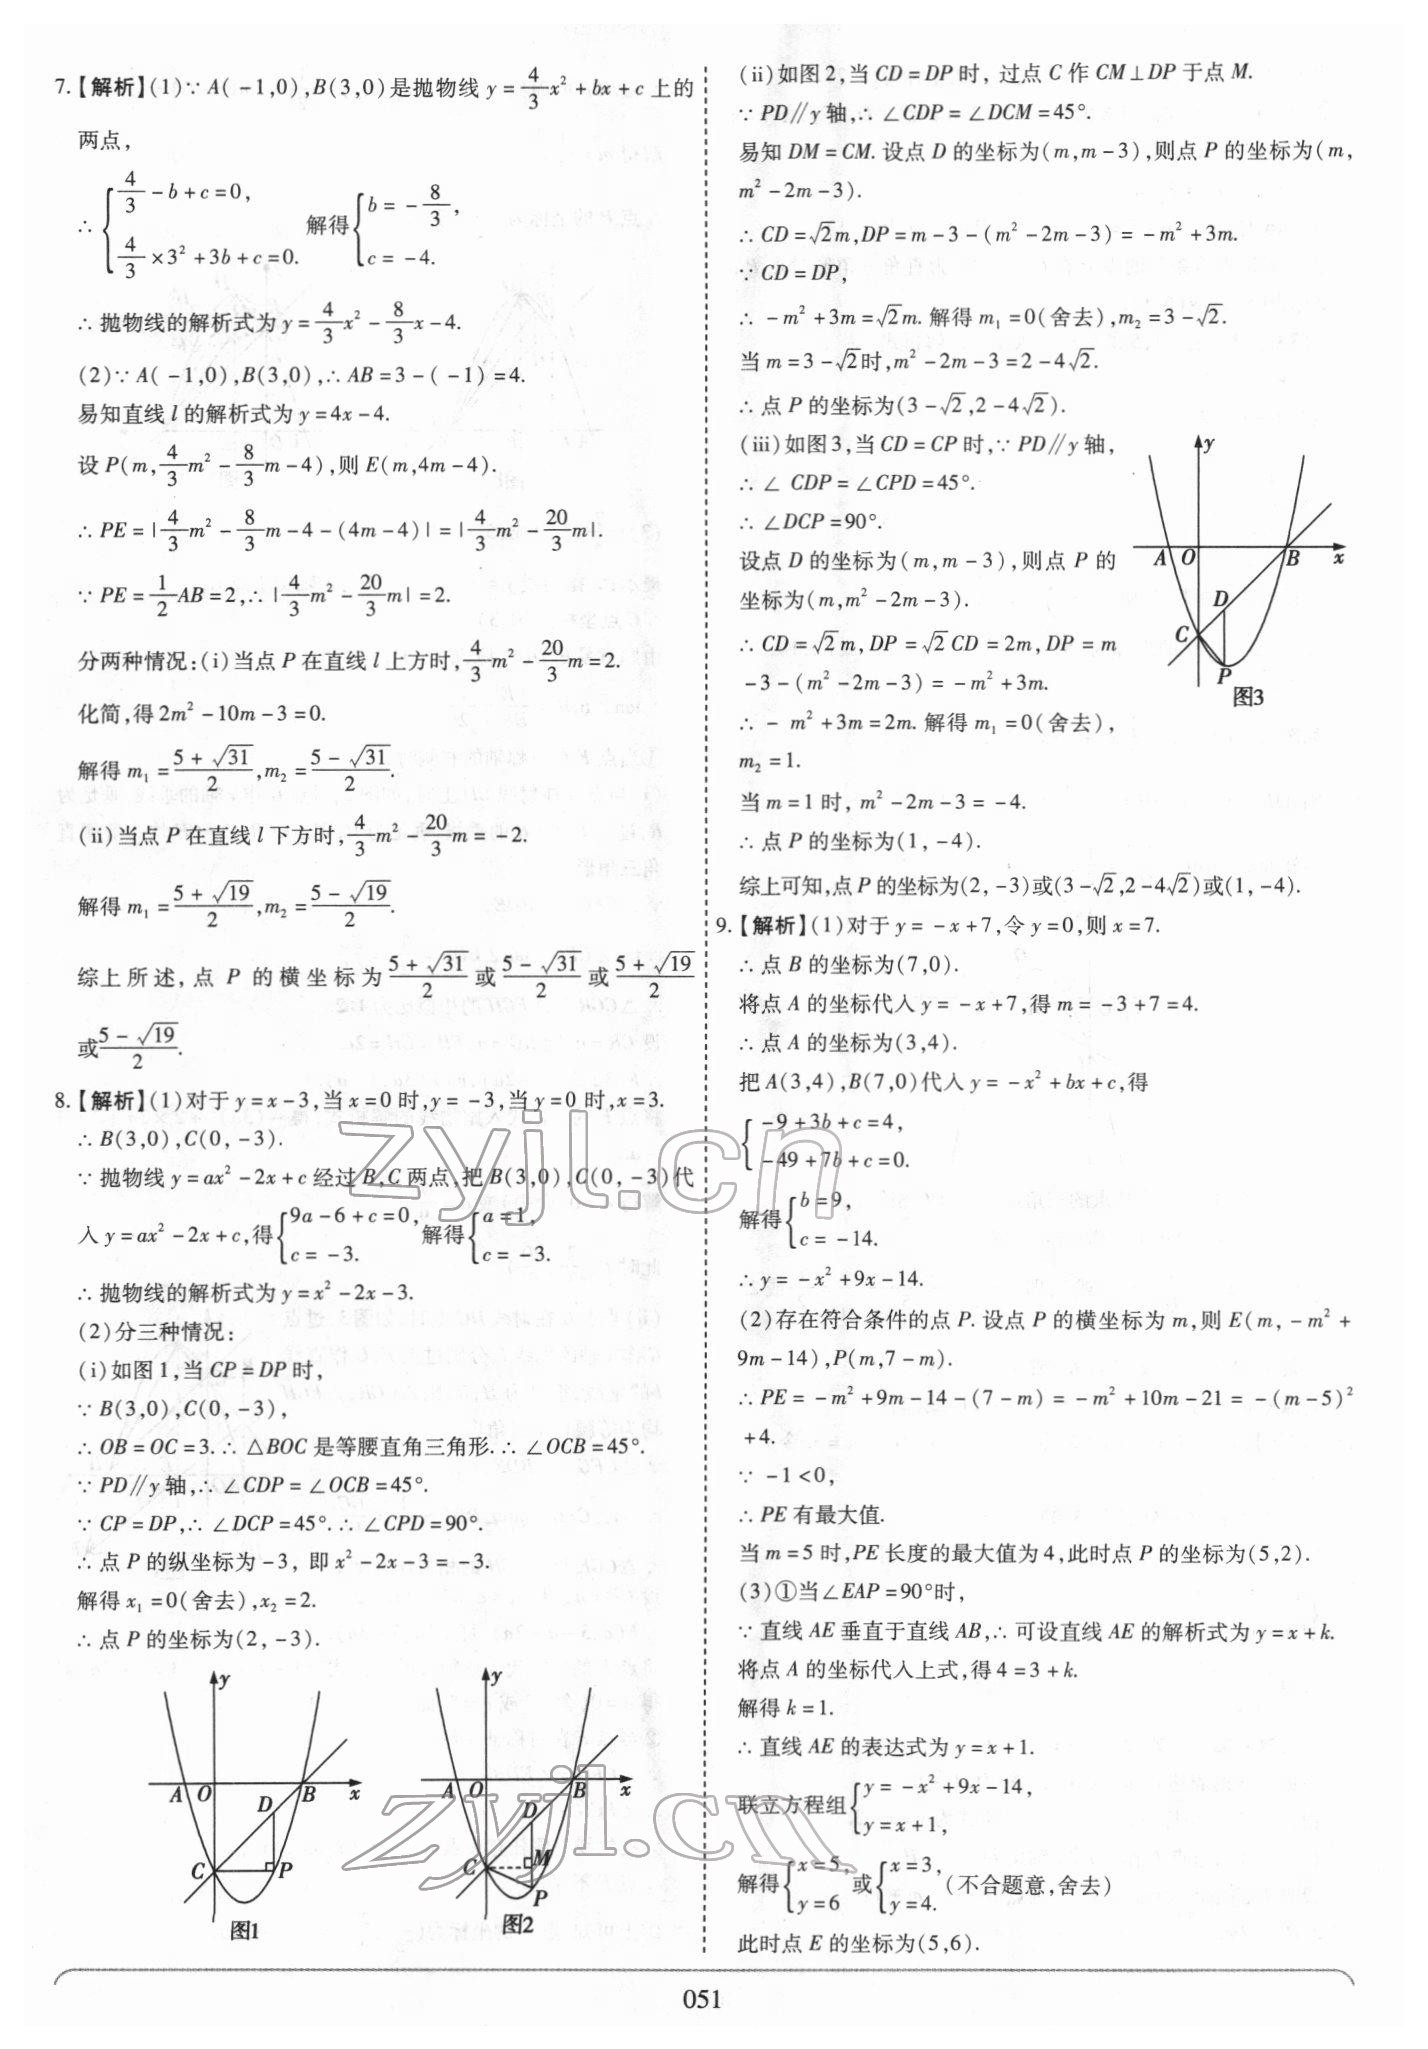 7.【解析】(1)∵A(-1,0),B(3,0)是抛物线y=4/3x²+bx+c上的
两点,
∴{4/3-b+c=0, 4/3×3²+3b+c=0. 解得{b=-8/3, c=-4.
∴抛物线的解析式为y=4/3x²-8/3x-4.
(2)∵A(-1,0),B(3,0),∴AB=3-(-1)=4.
易知直线l的解析式为y=4x-4.
设P(m,4/3m²-8/3m-4),则E(m,4m-4).
∴PE=|4/3m²-8/3m-4-(4m-4)|=|4/3m²-20/3m|.
∵PE=1/2AB=2,∴|4/3m²-20/3m|=2.
分两种情况:(i)当点P在直线l上方时,4/3m²-20/3m=2.
化简,得2m²-10m-3=0.
解得m₁=(5+√31)/2,m₂=(5-√31)/2.
(ii)当点P在直线l下方时,4/3m²-20/3m=-2.
解得m₁=(5+√19)/2,m₂=(5-√19)/2.
综上所述,点P的横坐标为(5+√31)/2或(5-√31)/2或(5+√19)/2
或(5-√19)/2.
8.【解析】(1)对于y=x-3,当x=0时,y=-3,当y=0时,x=3.
∴B(3,0),C(0,-3).
∵抛物线y=ax²-2x+c经过B,C两点,把B(3,0),C(0,-3)代
入y=ax²-2x+c,得{9a-6+c=0, c=-3. 解得{a=1, c=-3.
∴抛物线的解析式为y=x²-2x-3.
(2)分三种情况:
(i)如图1,当CP=DP时,
∵B(3,0),C(0,-3),
∴OB=OC=3.∴△BOC是等腰直角三角形.∴∠OCB=45°.
∵PD∥y轴,∴∠CDP=∠OCB=45°.
∵CP=DP,∴∠DCP=45°.∴∠CPD=90°.
∴点P的纵坐标为-3,即x²-2x-3=-3.
解得x₁=0(舍去),x₂=2.
∴点P的坐标为(2,-3).
y
A O B x
D
C P
图1
y
A O B x
D
C M
P
图2
(ii)如图2,当CD=DP时,过点C作CM⊥DP于点M.
∵PD∥y轴,∴∠CDP=∠DCM=45°.
易知DM=CM.设点D的坐标为(m,m-3),则点P的坐标为(m,
m²-2m-3).
∴CD=√2m,DP=m-3-(m²-2m-3)=-m²+3m.
∵CD=DP,
∴-m²+3m=√2m.解得m₁=0(舍去),m₂=3-√2.
当m=3-√2时,m²-2m-3=2-4√2.
∴点P的坐标为(3-√2,2-4√2).
(iii)如图3,当CD=CP时,∵PD∥y轴,
∴∠CDP=∠CPD=45°.
∴∠DCP=90°.
设点D的坐标为(m,m-3),则点P的
坐标为(m,m²-2m-3).
∴CD=√2m,DP=√2CD=2m,DP=m
-3-(m²-2m-3)=-m²+3m.
∴-m²+3m=2m.解得m₁=0(舍去),
m₂=1.
当m=1时,m²-2m-3=-4.
∴点P的坐标为(1,-4).
y
A O B x
D
C
P
图3
综上可知,点P的坐标为(2,-3)或(3-√2,2-4√2)或(1,-4).
9.【解析】(1)对于y=-x+7,令y=0,则x=7.
∴点B的坐标为(7,0).
将点A的坐标代入y=-x+7,得m=-3+7=4.
∴点A的坐标为(3,4).
把A(3,4),B(7,0)代入y=-x²+bx+c,得
{-9+3b+c=4, -49+7b+c=0.
解得{b=9, c=-14.
∴y=-x²+9x-14.
(2)存在符合条件的点P.设点P的横坐标为m,则E(m,-m²+
9m-14),P(m,7-m).
∴PE=-m²+9m-14-(7-m)=-m²+10m-21=-(m-5)²
+4.
∵-1<0,
∴PE有最大值.
当m=5时,PE长度的最大值为4,此时点P的坐标为(5,2).
(3)①当∠EAP=90°时,
∵直线AE垂直于直线AB,∴可设直线AE的解析式为y=x+k.
将点A的坐标代入上式,得4=3+k.
解得k=1.
∴直线AE的表达式为y=x+1.
联立方程组{y=-x²+9x-14, y=x+1,
解得{x=5, y=6 或{x=3, y=4. (不合题意,舍去)
此时点E的坐标为(5,6).
zyjl.cn
zyjl.cn
051